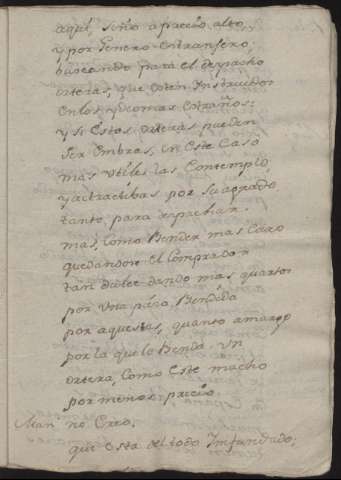 aqui, sino a precio alto,
y por Genero extrangero;
buscando para el despacho
orteras, que esten Instruidos
en los ydiomas estraños:
y si estos orteras pueden
ser embras, en este caso
mas utiles las Contemplo,
y atractibas por su agrado
tanto, para despachar
mas, como Bender mas Caro
quedandose el Comprador
tan dulce dando mas quartos
por una pieza, Bendida
por aquestas, quanto amargo
por la que lo Benda, un
ortera, Como este macho
por menos precio.
Man no Creo,
que esta del todo Infundado;